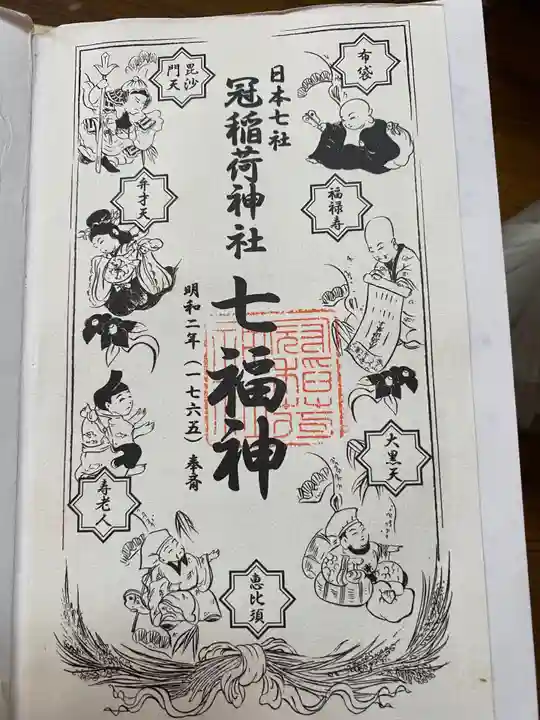 日本七社
冠稲荷神社
七福神
明和二年(一七六五)奉斎
布袋
福禄寿
大黒天
恵比須
毘沙
門天
弁才天
寿老人